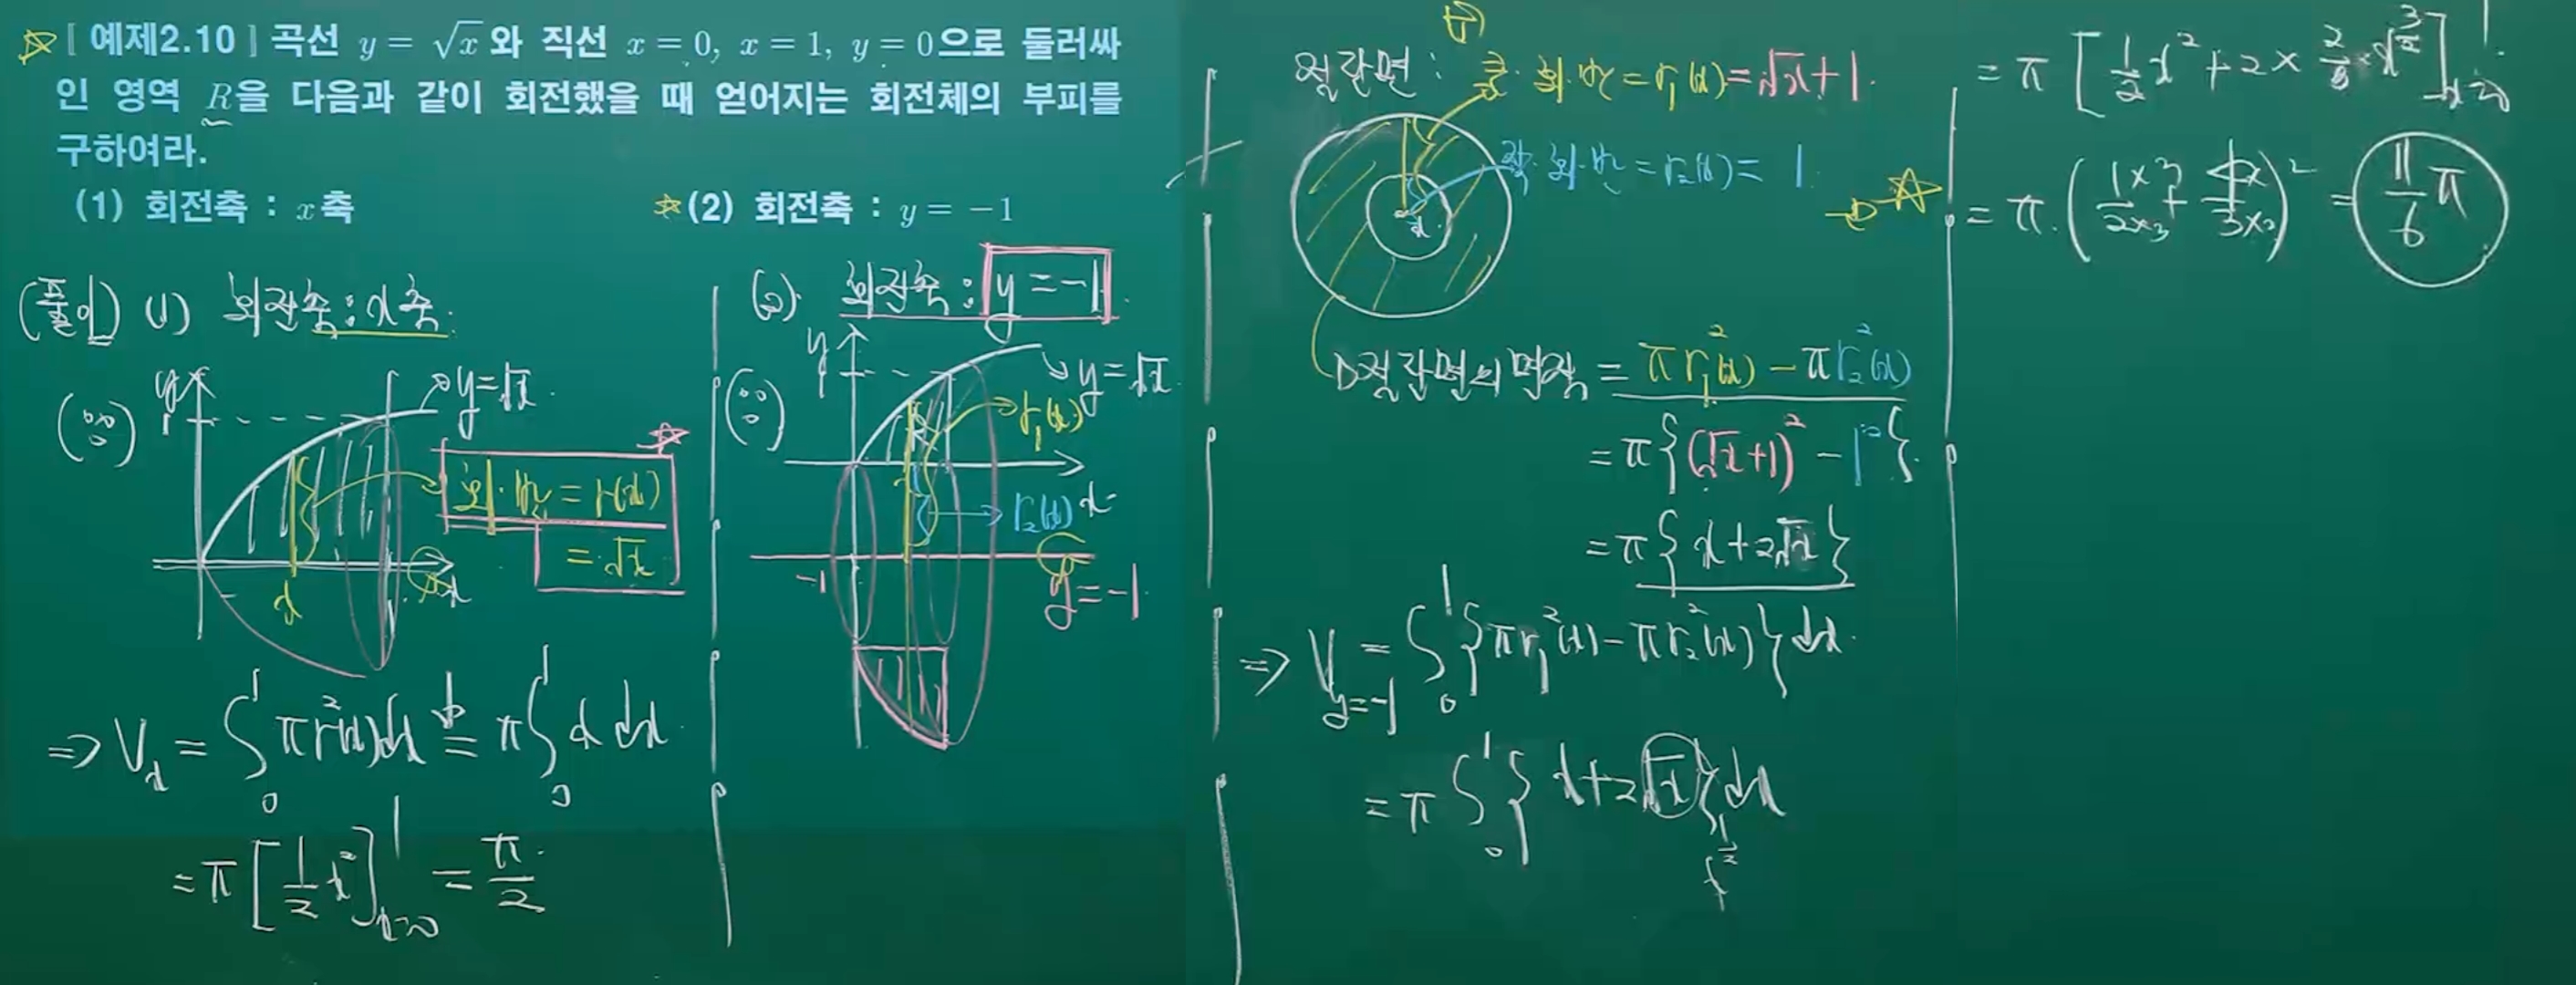 ☆ [ 예제2.10 ] 곡선 y = √x 와 직선 x = 0, x = 1, y = 0으로 둘러싸
인 영역 R을 다음과 같이 회전했을 때 얻어지는 회전체의 부피를
구하여라.
(1) 회전축 : x축
☆(2) 회전축 : y = −1
(풀이) (1) 회전축 : x축.
(∵)
y
1
y=√x
회·반 = r(x)
= √x
x
x
1
⇒ V_x = ∫₀¹ πr²(x)dx = π∫₀¹ x dx
= π[½x²]¹ₓ₌₀ = π/2
(2). 회전축 : y = −1
(∵)
y
1
y=√x
R
r₁(x)
r₂(x)
x
−1
y=−1
절단면 :
큰·회·반 = r₁(x) = √x+1.
작·회·반 = r₂(x) = 1
x
절단면의 면적 = πr₁²(x) − πr₂²(x)
= π{(√x+1)² − 1²}.
= π{x+2√x}
⇒ V_{y=−1} = ∫₀¹{πr₁²(x) − πr₂²(x)}dx.
= π∫₀¹{x+2√x}dx
x^½
= π[½x² + 2×⅔×x^{3/2}]¹ₓ₌₀
☆
= π·(1×3/2×3 + 4×2/3×2) = 11/6 π